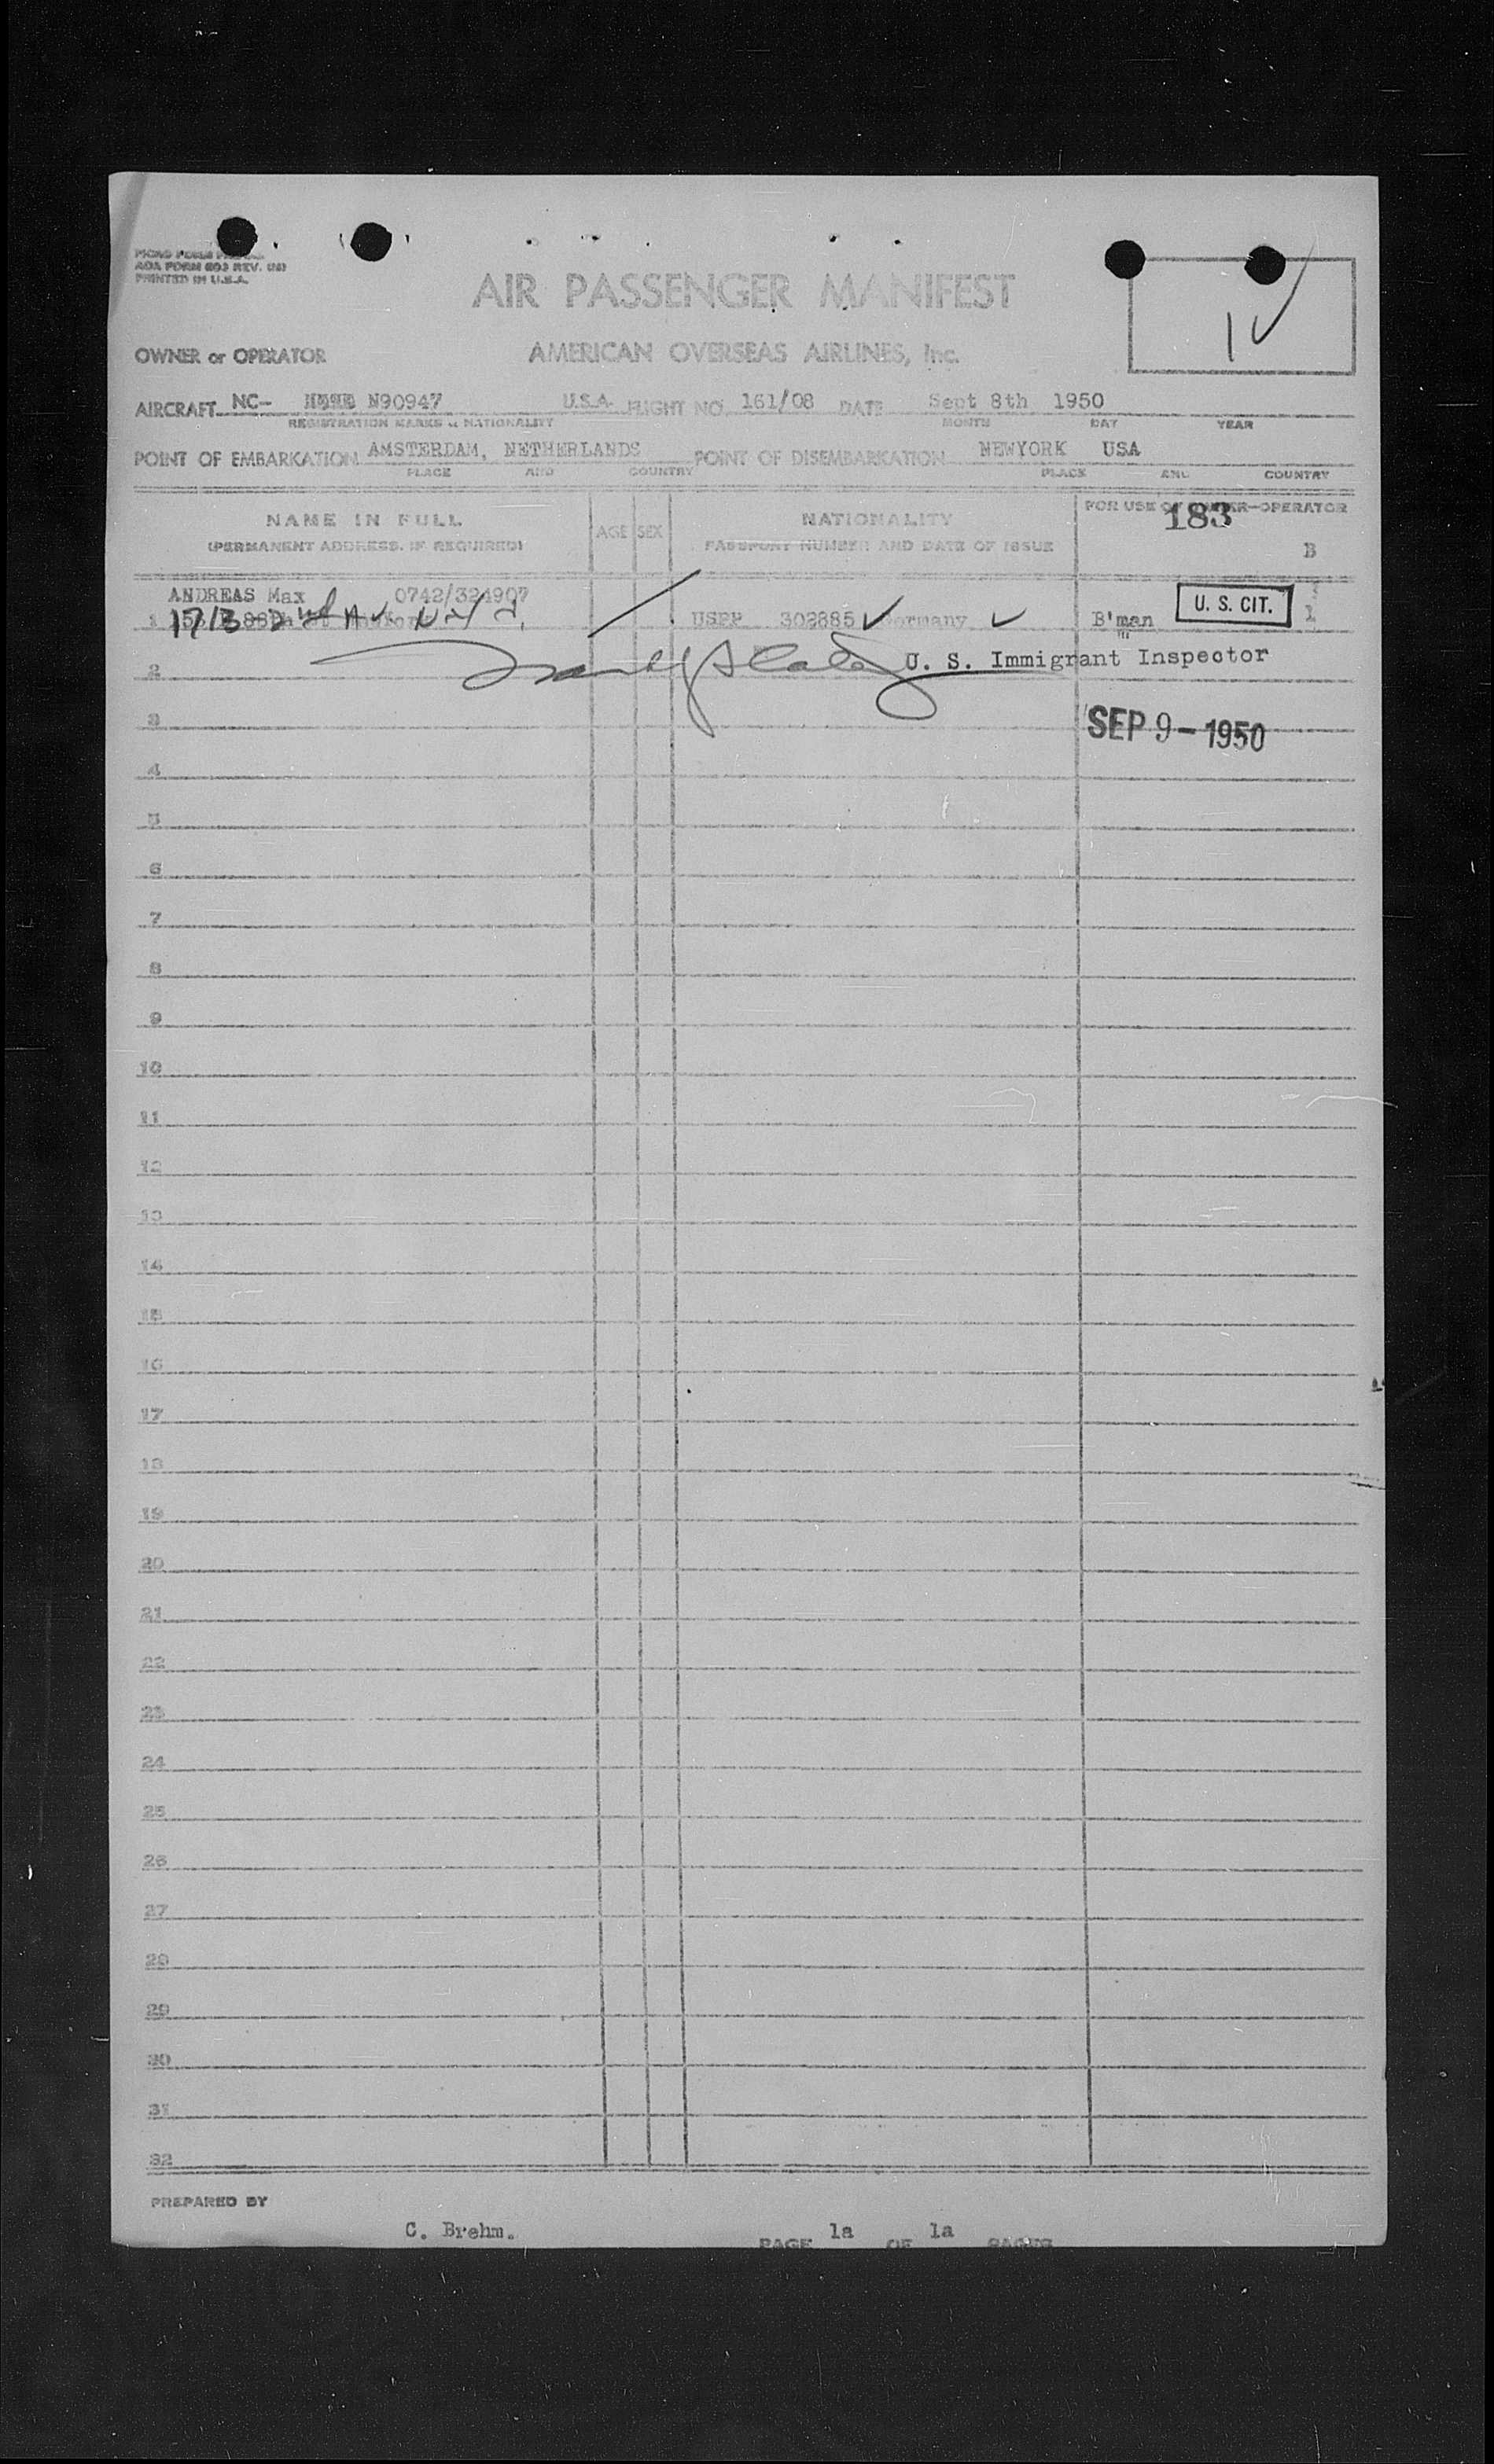 AOA FORM 603 REV.
PRINTED IN U.S.A.
AIR PASSENGER MANIFEST
OWNER or OPERATOR
AMERICAN OVERSEAS AIRLINES, Inc.
AIRCRAFT NC- N90947 U.S.A. FLIGHT NO. 161/08 DATE Sept 8th 1950
REGISTRATION MARKS & NATIONALITY MONTH DAY YEAR
POINT OF EMBARKATION AMSTERDAM, NETHERLANDS POINT OF DISEMBARKATION NEWYORK USA
PLACE AND COUNTRY PLACE AND COUNTRY
NAME IN FULL AGE SEX NATIONALITY FOR USE OF OWNER-OPERATOR
183
(PERMANENT ADDRESS, IF REQUIRED) PASSPORT NUMBER AND DATE OF ISSUE B
ANDREAS Max 0742/324907
1 1713 2nd Av N.Y. USPP 302885 Germany B'man U. S. CIT. 1
2 U. S. Immigrant Inspector
3 SEP 9 - 1950
4
5
6
7
8
9
10
11
12
13
14
15
16
17
18
19
20
21
22
23
24
25
26
27
28
29
30
31
32
PREPARED BY
C. Brehm. PAGE 1a OF 1a PAGES